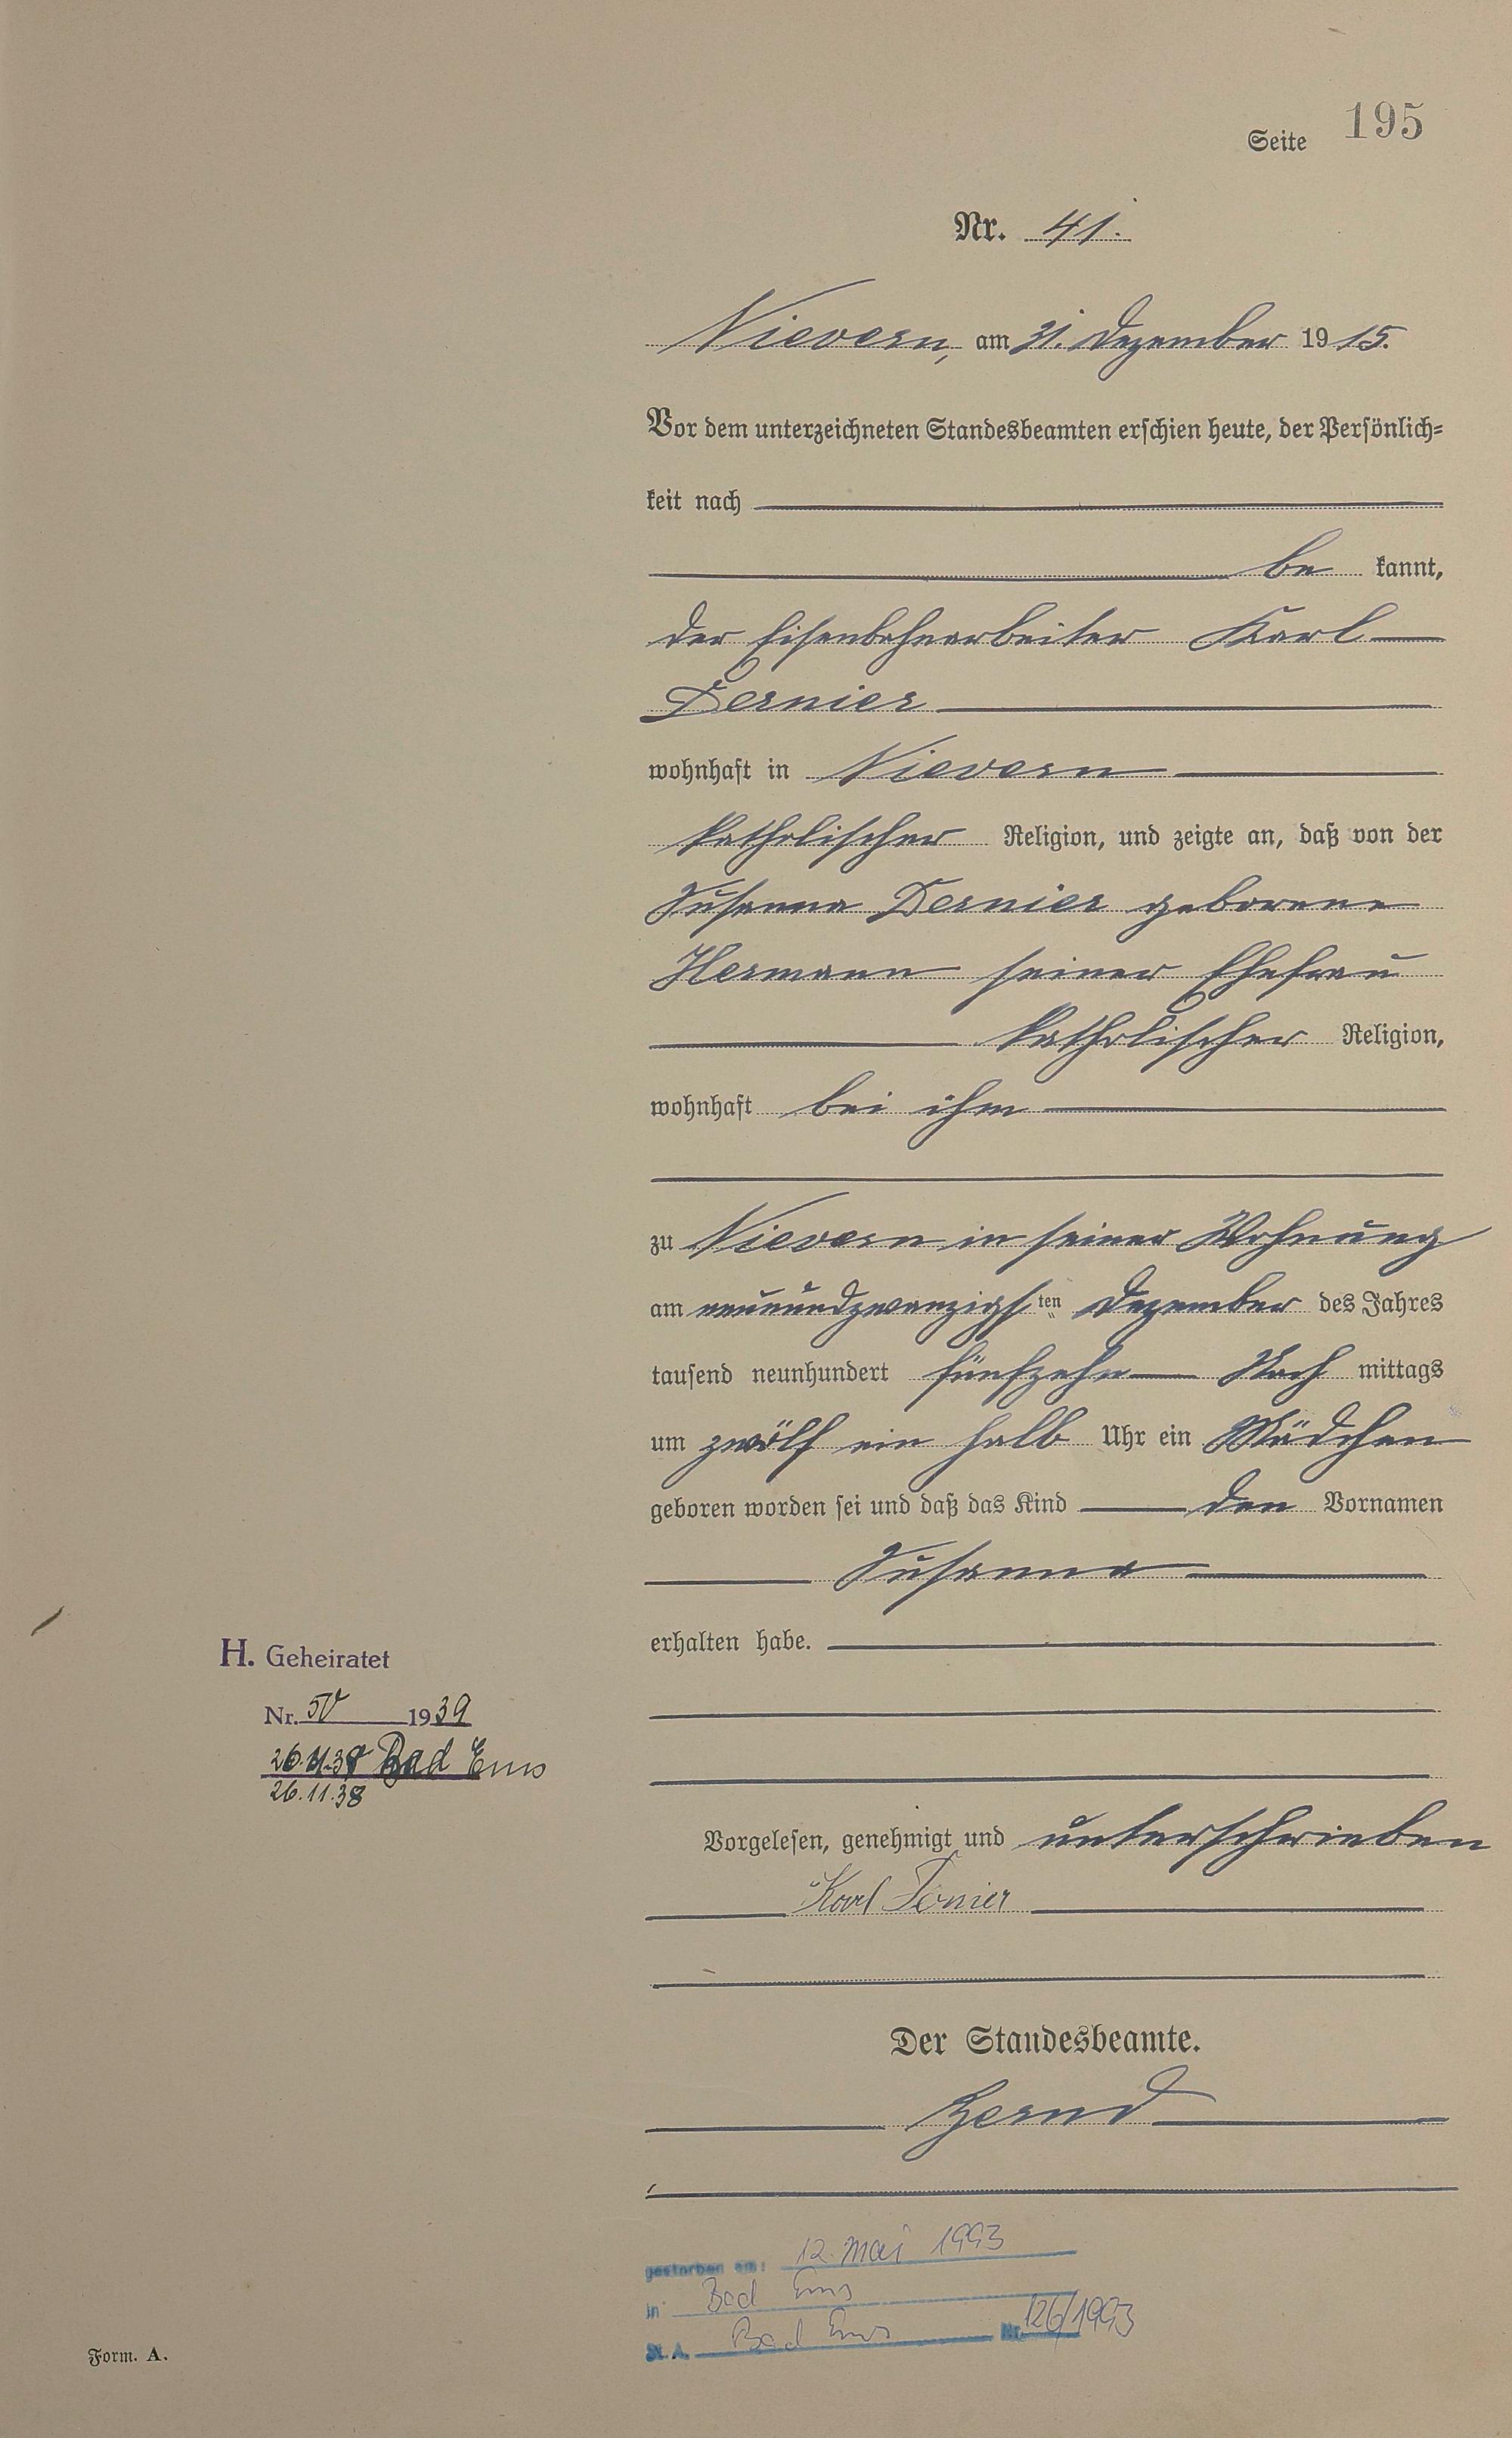 Seite 195
Nr. 41.
Nievern, am 31. Dezember 1915.
Vor dem unterzeichneten Standesbeamten erschien heute, der Persönlich=
keit nach
be kannt,
der Eisenbahnarbeiter Karl
Dernier
wohnhaft in Nievern
katholischer Religion, und zeigte an, daß von der
Susanna Dernier geborene
Hermann seiner Ehefrau
katholischer Religion,
wohnhaft bei ihm
zu Nievern in seiner Wohnung
am neunundzwanzigsten Dezember des Jahres
tausend neunhundert fünfzehn Nach mittags
um zwölf ein halb Uhr ein Mädchen
geboren worden sei und daß das Kind den Vornamen
Susanna
erhalten habe.
H. Geheiratet
Nr. 50 1939
Bad Ems
26.11.38
Vorgelesen, genehmigt und unterschrieben
Karl
Der Standesbeamte.
gestorben am: 12. Mai 1993
in Bad Ems
St. A. Bad Ems Nr. 126/1993
Form. A.